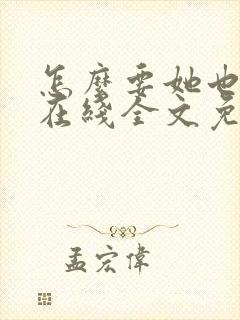 怎麼要她也
在綫全文免
孟宏偉